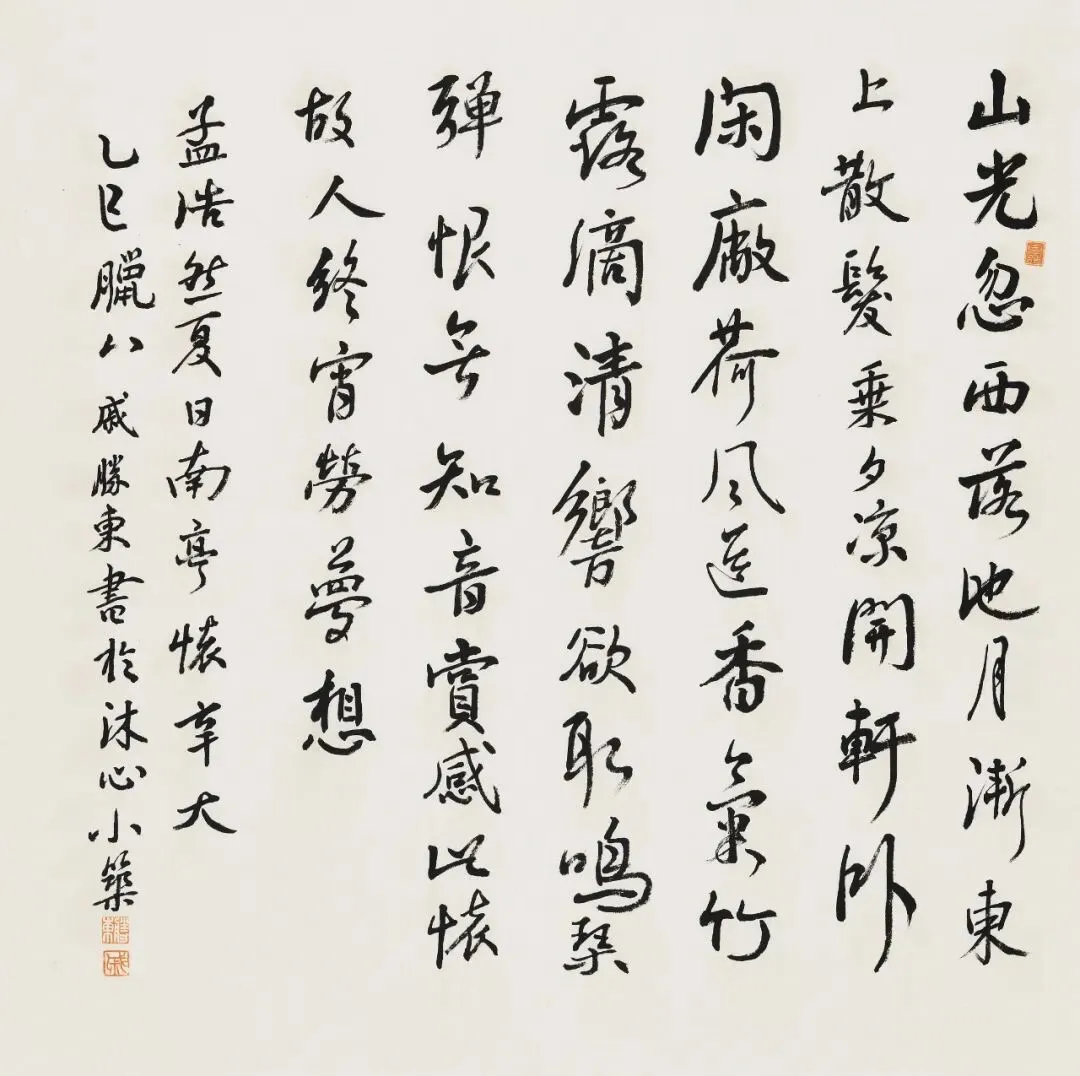 山光忽西落池月漸東
上散髮乘夕凉開軒卧
閑廠荷風送香氣竹
露滴清響欲取鳴琴
彈恨無知音賞感此懷
故人終宵勞夢想
孟浩然夏日南亭懷辛大
乙巳臘八戚勝東書於沐心小築